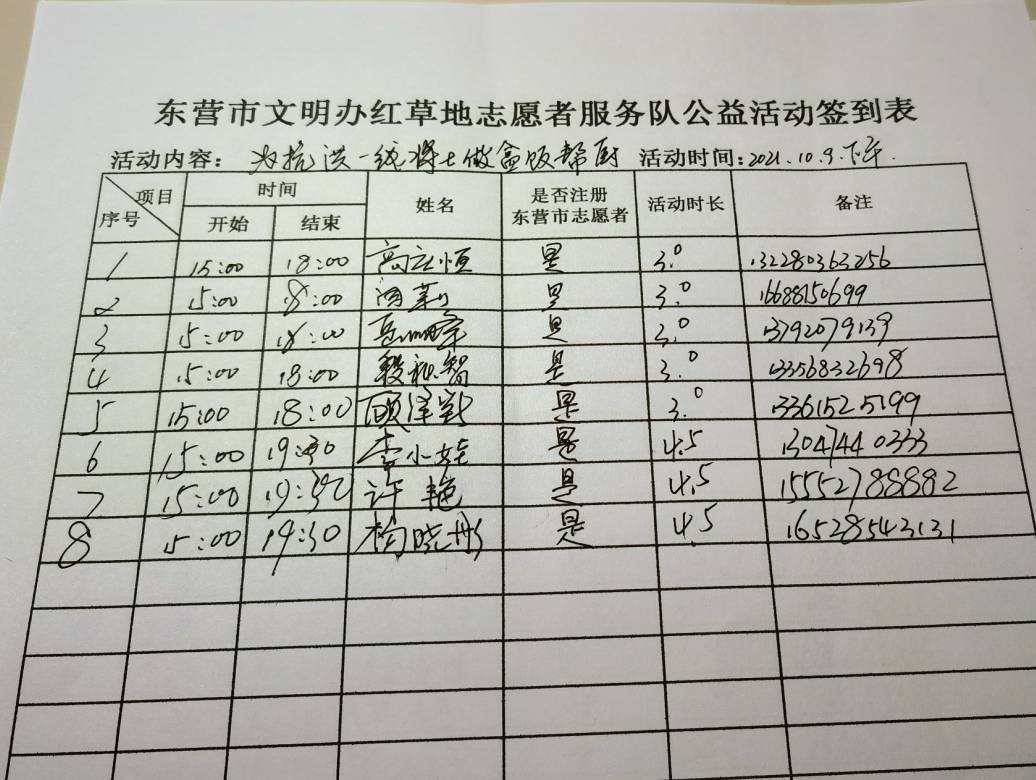 东营市文明办红草地志愿者服务队公益活动签到表
活动内容：为抗洪一线将士做盒饭帮厨 活动时间：2021.10.9.下午.
项目 序号 时间 姓名 是否注册东营市志愿者 活动时长 备注
开始 结束
1 15:00 18:00 高立恒 是 3.0 13228036356
2 15:00 18:00 是 3.0 16688150699
3 15:00 18:00 是 3.0 13792079139
4 15:00 18:00 段智 是 3.0 13356832698
5 15:00 18:00 顾泽 是 3.0 13361525199
6 15:00 19:30 李小娃 是 4.5 13047440333
7 15:00 19:30 许艳 是 4.5 15552788882
8 15:00 19:30 杨晓彤 是 4.5 16528543131